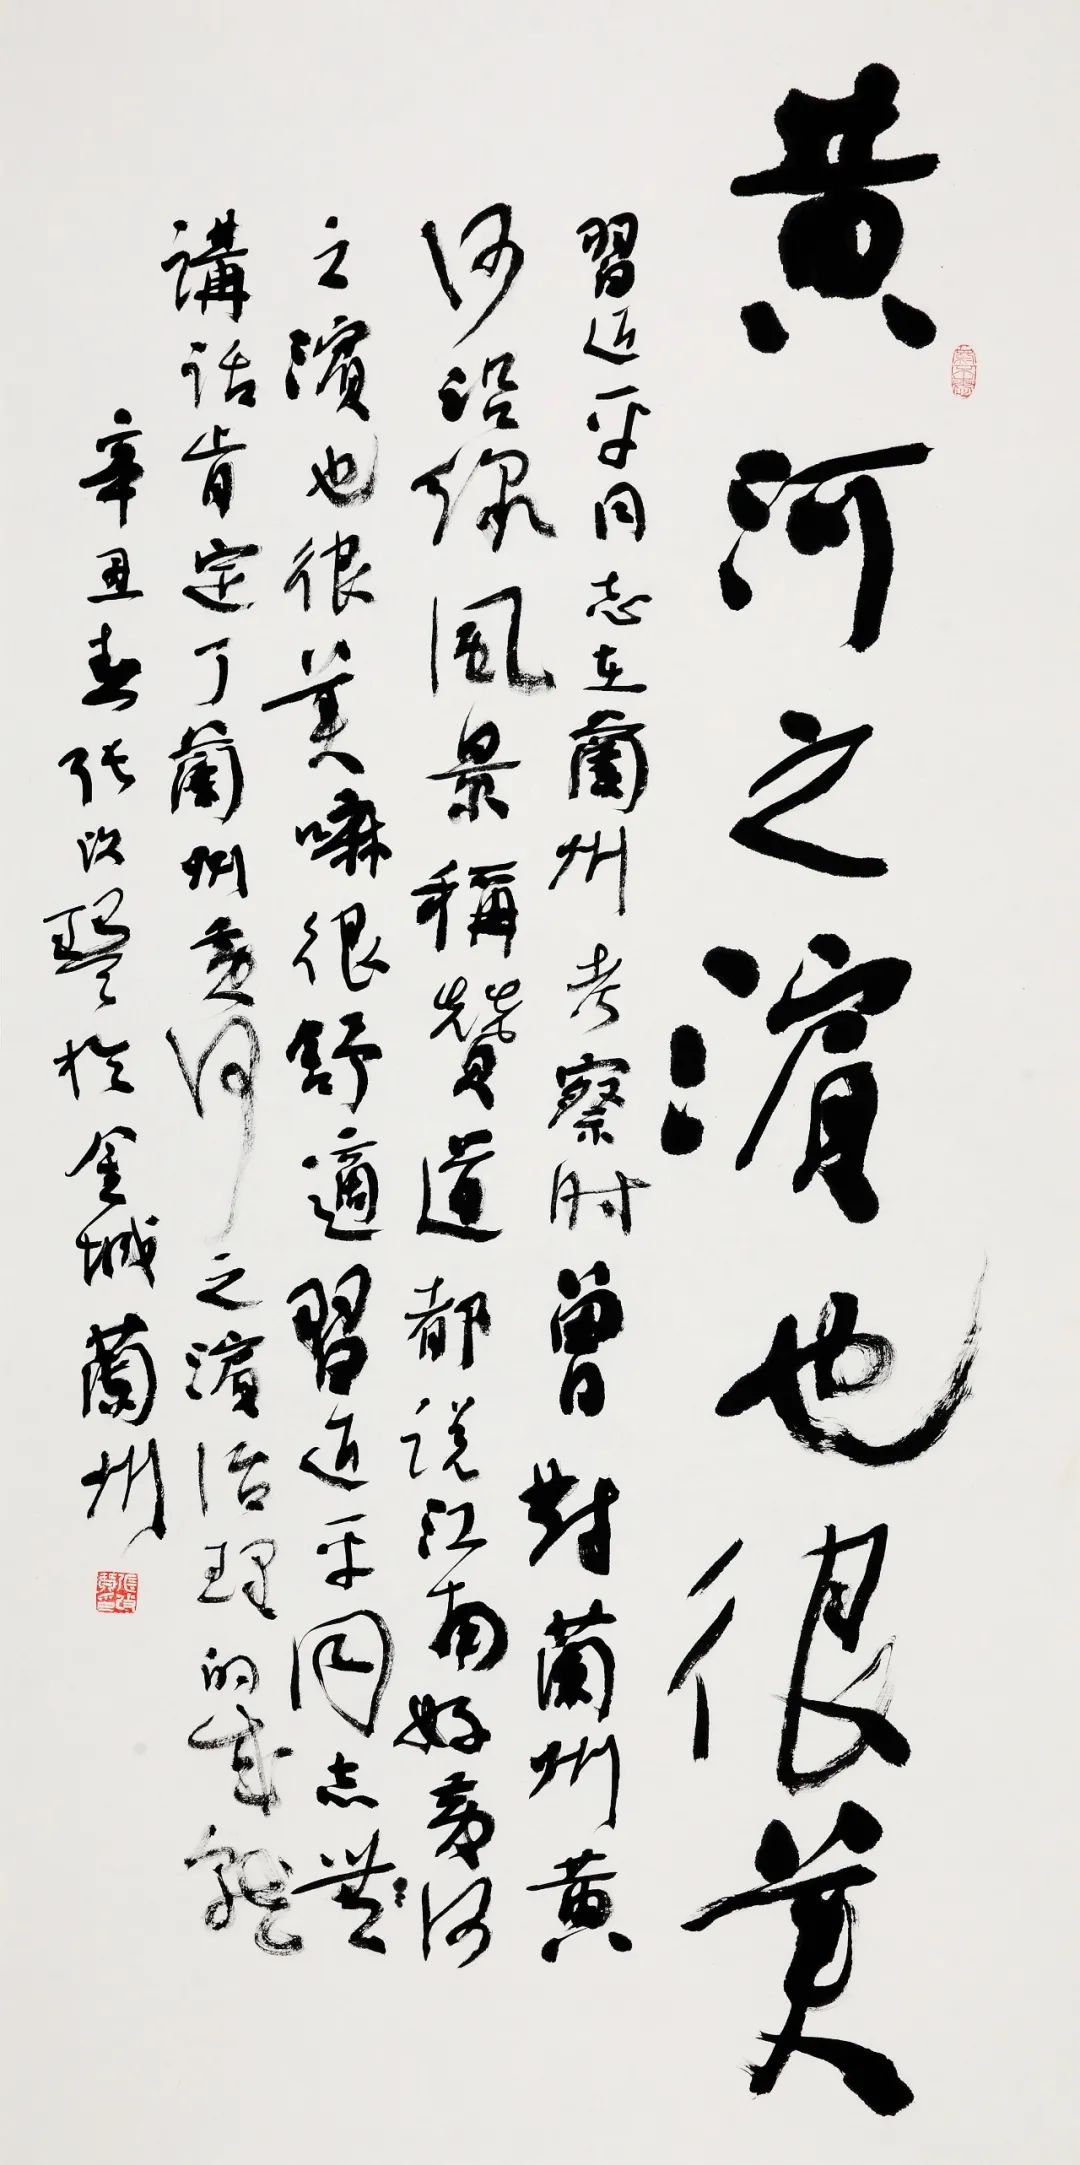 黄河之濱也很美
習近平同志在蘭州考察时曾對蘭州黄
河沿線風景稱贊道都说江南好黄河
之濱也很美嘛很舒適習近平同志
講話肯定了蘭州黄河之濱治理的成就
辛丑春张改琴於金城蘭州
張改琴印